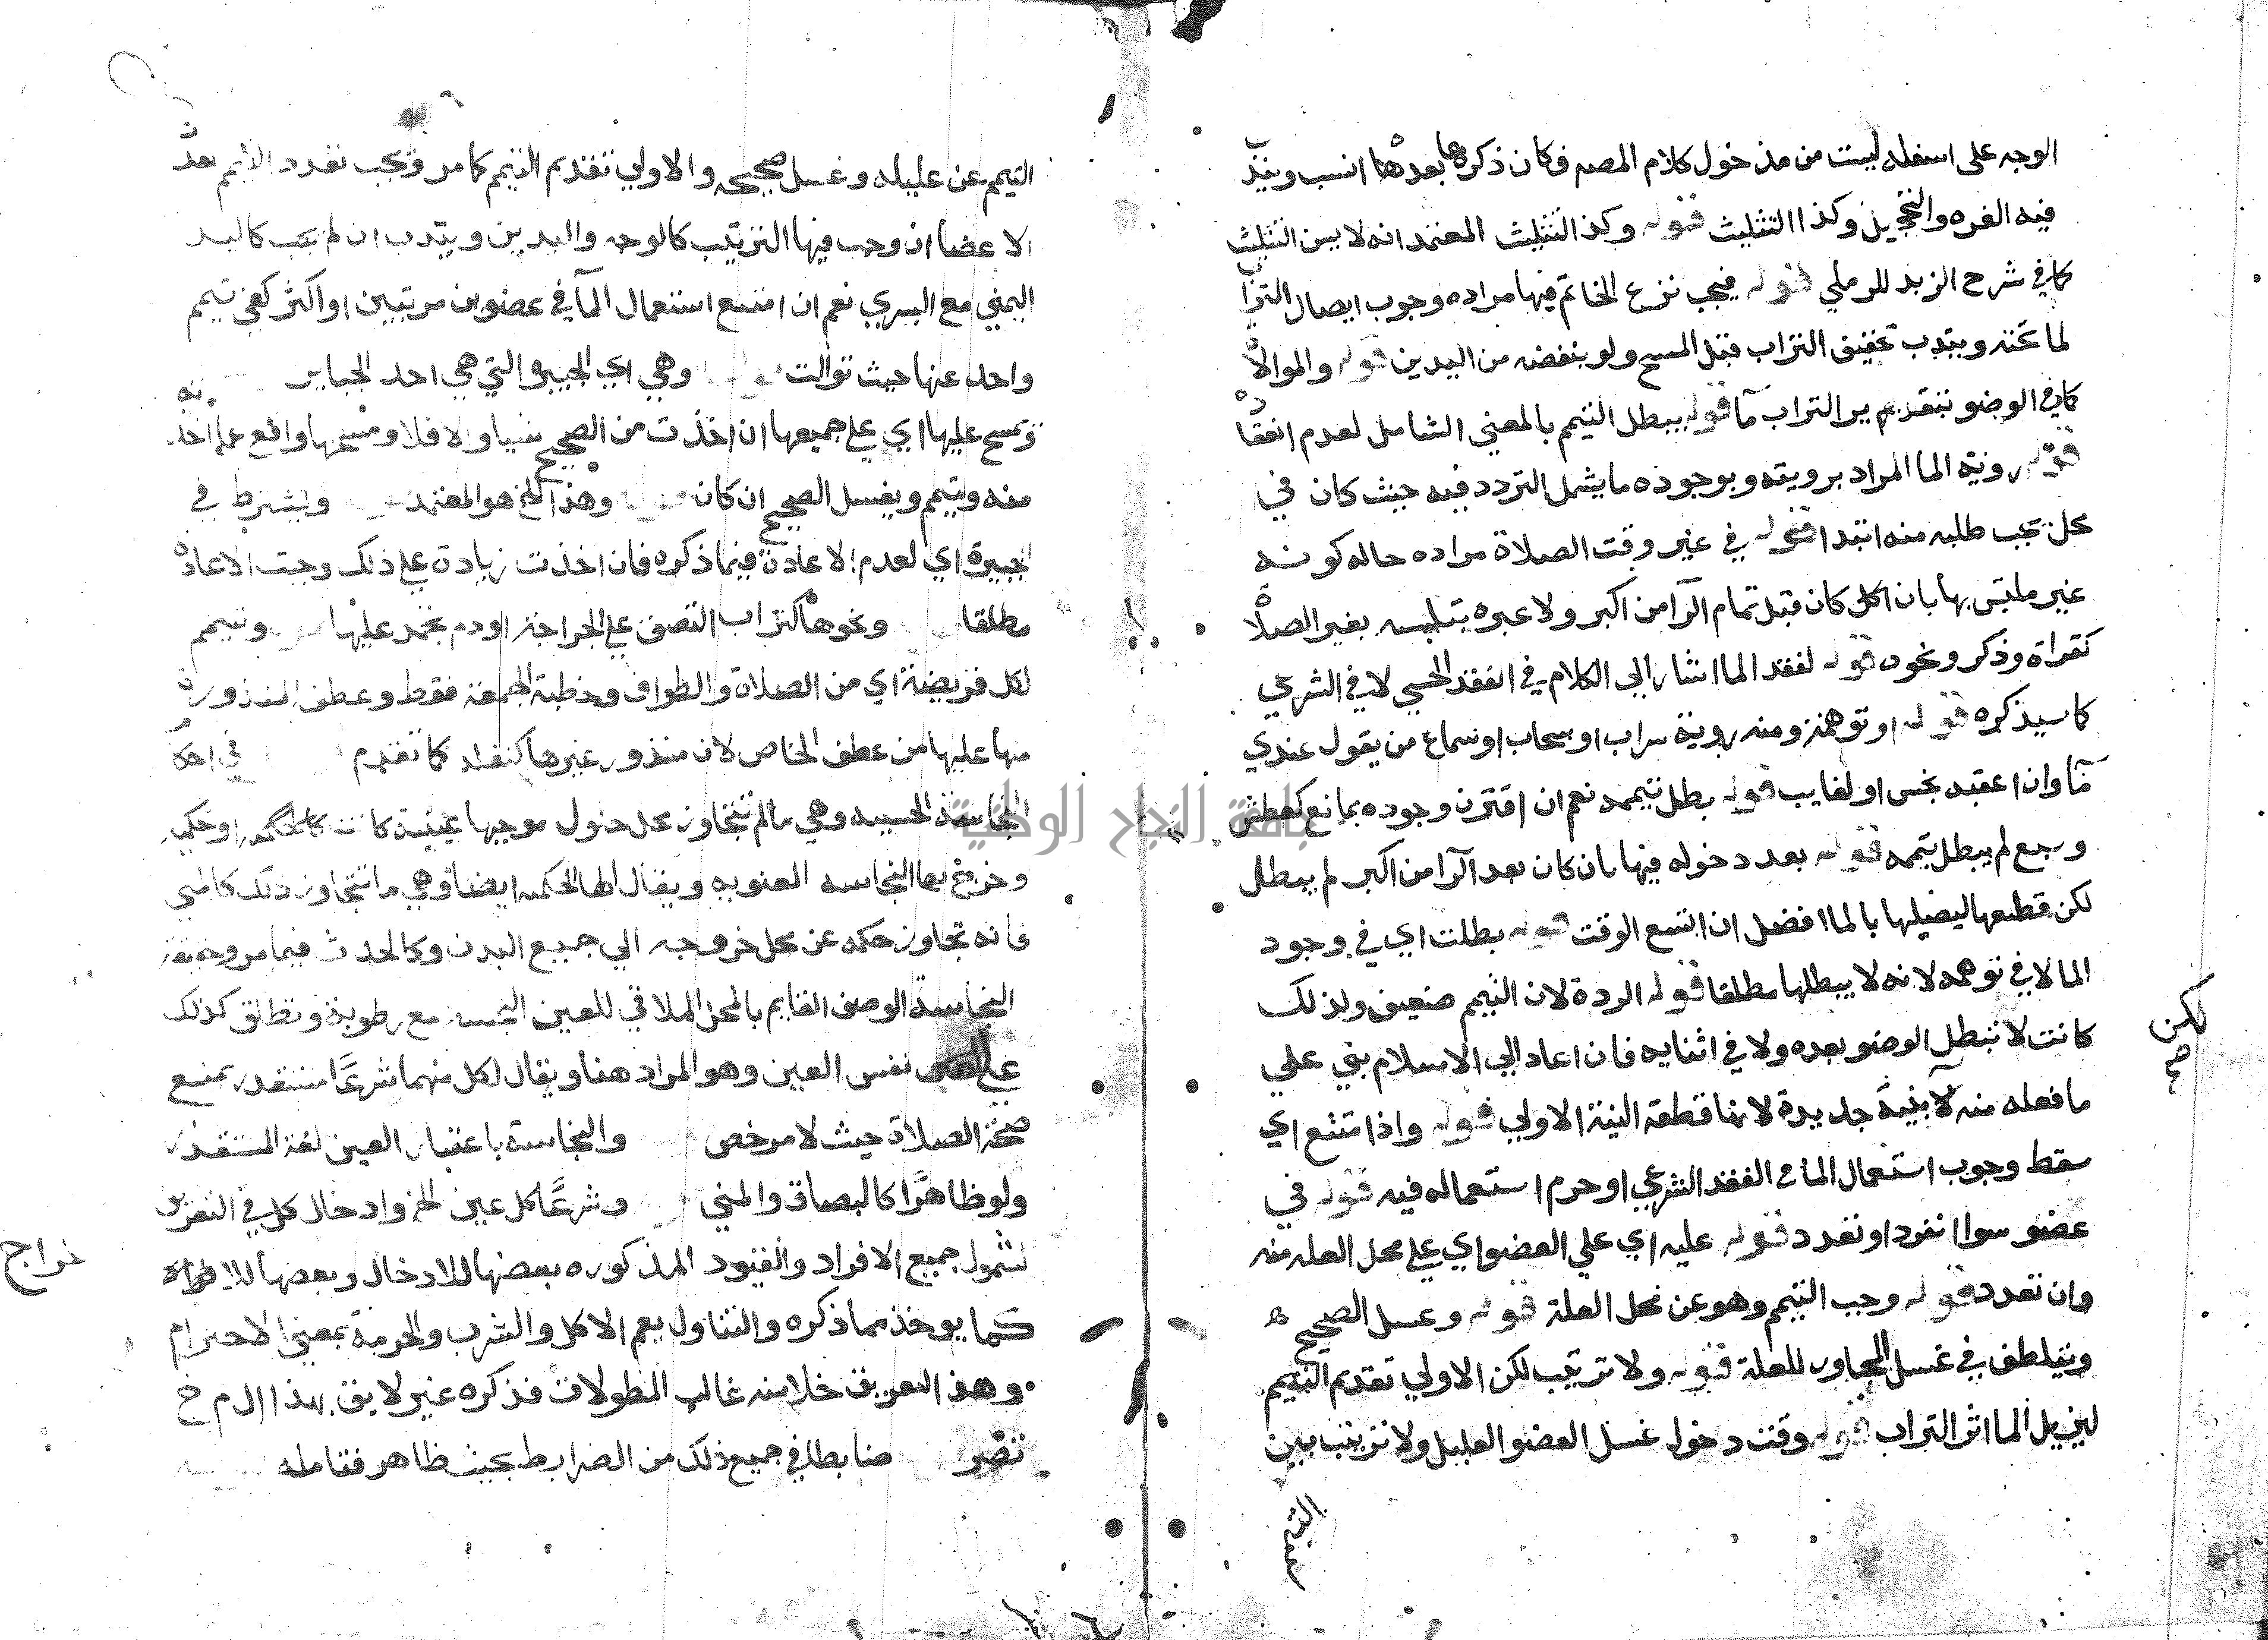 الوجه على اسفله ليست من مدخول كلام المصه فكان ذكره ما بعدها انسب ويندب
فيه الغره والتحجيل وكذا التثليث قوله وكذ التثليث المعتمد انه لا يسن التثليث
كما في شرح الزبد للرملي قوله فيجب نزع الخاتم فيها مراده وجوب ايصال التراب
لما تحته ويندب تخفيف التراب قبل المسح ولو بنفضه من اليدين قوله والموالاة
كما في الوضو بتقدير التراب مآ قوله يبطل التيمم بالمعني الشامل لعدم انعقاده
قوله روية الما المراد برويته وبوجوده ما يشمل التردد فيه حيث كان في
محل يجب طلبه منه ابتدا قوله في غير وقت الصلاة مراده حاله كونه
غير ملتبس بها بان اكل كان قبل تمام الرا من اكبر ولا عبره بتلبسه بغير الصلاة
كقراة وذكر ونحوه قوله لفقد الما اشار الى الكلام في الفقد الحسي لا في الشرعي
كما سيذكره قوله او توهمه ومنه روية سراب او سحاب او سماع من يقول عندي
مآ وان اعقبه بنجس او لغايب قوله بطل تيممه نعم ان اقترن وجوده بمانع كعطش
وسبع لم يبطل تيممه قوله بعد دخوله فيها بان كان بعد الرا من اكبر لم يبطل
لكن قطعها ليصليها بالما افضل ان اتسع الوقت قوله بطلت اي في وجود
الما لا في توهمه لانه لا يبطلها مطلقا قوله الردة لان التيمم ضعيف ولذلك
كانت لا تبطل الوضو بعده ولا في اثنايه فان اعاد الى الاسلام بني على
ما فعله منه لا بنية جديدة لانها قطعة النية الاولي قوله واذا متنع اي
سقط وجوب استعمال الما في الفقد الشرعي او حرم استعماله فيه قوله في
عضو سوا انفرد او تعدد قوله عليه اي علي العضو اي على محل العله منه
وان تعدد قوله وجب التيمم وهو عن محل العلة قوله وغسل الصحيح
ويتلطف في غسل المجاور للعلة قوله ولا ترتيب لكن الاولي تقديم التيمم
ليزيل الما اثر التراب قوله وقت دخول غسل العضو العليل ولا ترتيب بين
لكن
التيمم عن عليله وغسل صحيحه والاولي تقديم التيمم كما مر ويجب تعدد التيمم بعدد
الاعضا ان وجب فيها الترتيب كالوجه واليدين ويندب ان لم يجب كاليد
اليمني مع اليسري نعم ان امتنع استعمال المآ في عضوين مرتبين او اكثر كفي تيمم
واحد عنها حيث توالت وهي اي الجبيره التي هي احد الجباير
ويمسح عليها اي على جميعها ان اخذت من الصحيح شيا والا فلا ومسحها واقع عما اخذته
منه ويتيمم ويغسل الصحيح ان كان وهذا الخ هو المعتمد ويشترط في
الجبيرة اي لعدم الاعادة فيما ذكره فان اخذت زيادة علي ذلك وجبت الاعادة
مطلقا ونحوها كتراب التصق علي الجراحة او دم تجمد عليها ويتيمم
لكل فريضة اي من الصلاة والطواف وخطبة الجمعة فقط وعطف المنذورة
منها عليها من عطف الخاص لان منذور غيرها كنفله كما تقدم في احكا
النجاسة الحسيه وهي مالم تتجاوز محل حلول موجبها عينية كانت او حكميه
وخرج بها النجاسه المعنويه ويقال لها الحكميه ايضا وهي ما تتجاوز ذلك كالمني
فانه تجاوز حكمه عن محل خروجه الي جميع البدن وكالحدث فيما مر وحقيقة
النجاسة الوصف القايم بالمحل الملاقي للعين النجسه مع رطوبة وتطلق كذلك
علي نفس العين وهو المراد هنا ويقال لكل منهما شرعًا مستقذر يمنع
صحة الصلاة حيث لا مرخص والنجاسة باعتبار العين لغة المستقذر
ولو ظاهرًا كالبصاق والمني وشرعًا كل عين الخ وادخال كل في التعريف
لشمول جميع الافراد والقيود المذكوره بعضها للادخال وبعضها للاخراج
كما يوخذ مما ذكره والتناول يعم الاكل والشرب والحرمة بمعني الاحترام
وهذا التعريف خلا منه غالب المطولات فذكره غير لايق بهذا
ضابطا في جميع ذلك من الضرابط بحيث ظاهر فتامله
جامعة النجاح الوطنية